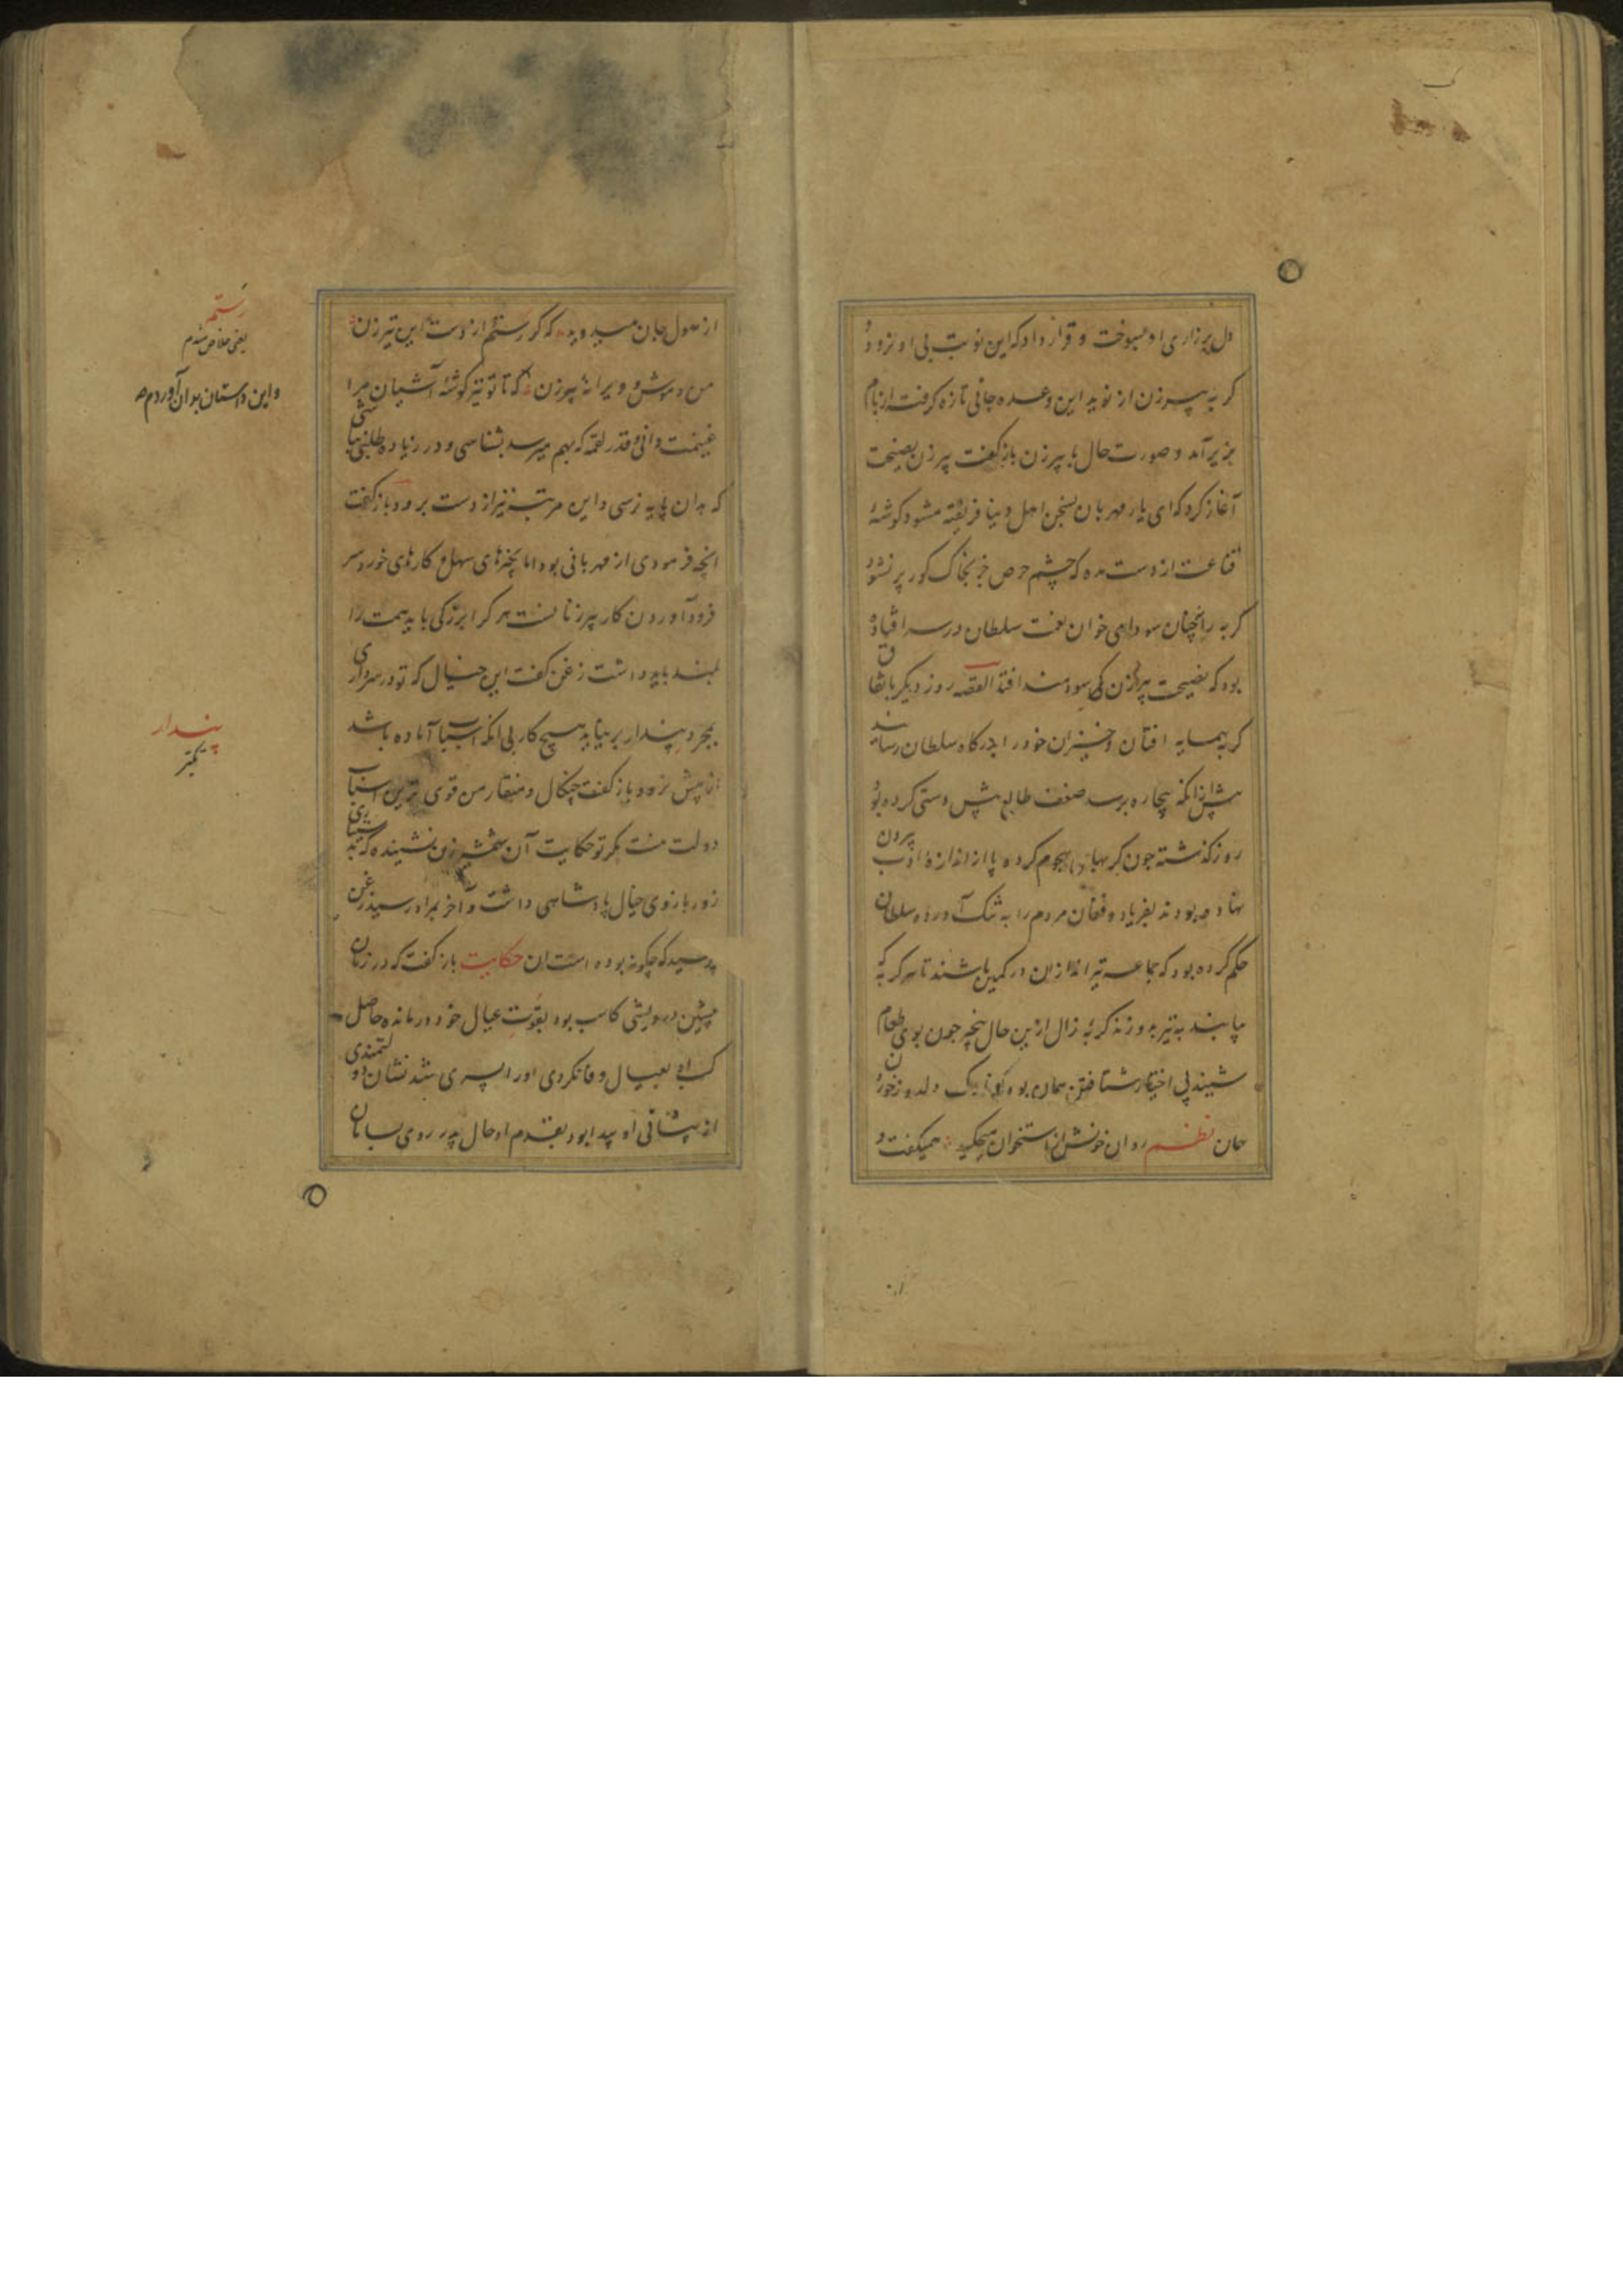 دل بر زاری او بسوخت و قرار داد که این نوبت بی او نرود
گربه پیرزن از نوید این وعده جانی تازه گرفت از بام
بزیر آمد و صورت حال با پیرزن باز گفت پیرزن نصیحت
آغاز کرد که ای یار مهربان بسخن اهل دنیا فریفته مشو و گوشهٔ
قناعت از دست مده که چشم حرص جز بخاک گور پر نشود
گربه را چنان سودای خوان نعمت سلطان در سر افتاده
بود که نصیحت پیرزن کی سودمند افتد القصه روز دیگر باتفاق
گربه همسایه افتان و خیزان خود را بدرگاه سلطان رسانید
پیش از آنکه بیچاره برسد ضعف طالع پیش دستی کرده بود
روز گذشته جون گربها هجوم کرده پا از اندازهٔ ادب بیرون
نهاده بودند بفریاد و فغان مردم را به تنک آورده سلطان
حکم کرده بود که جماعه تیراندازان در کمین باشند تا هر گربه که
بیابند به تیر بدوزند گربهٔ زال ازین حال بیخبر جون بوی طعام
شنید بی اختیار شتافتن همان بود و ناوک دلدوز خوردن
همان نظم روان خونش از استخوان میچکید همیگفت و
از هول جان میدوید که گر رستم از دست این تیرزن
من و موش و ویرانهٔ پیرزن که تا تو نیز گوشهٔ آشیان مرا
غنیمت دانی و قدر لقمه که بهم میرسد بشناسی و در زیاده طلبی نباشی
که بدان پایه نرسی و این مرتبه نیز از دست برود باز گفت
انچه فرمودی از مهربانی بود اما بچیزهای سهل و کارهای خورد سر
فرود آوردن کار پیرزنانست هر کرا بزرکی باید همت را
بلند باید داشت زغن گفت این خیال که تو در سر داری
بمجرد پندار بر نیاید هیچ کار بی انکه اسباب آماده باشد
از پیش نرود باز گفت چنکال و منقار من قوی ترین اسباب
دولت منست مگر تو حکایت آن شمشیرزن نشنیده که به
زور بازوی خیال پادشاهی داشت و آخر بمراد رسید زغن
پرسید که چکونه بوده است ان حکایت باز گفت که در زمان
پیشین درویشی کاسب بود بقوت عیال خود درمانده حاصل
کسب او بعیال وفا نکردی او را پسری شد نشان دولتمندی
از پیشانی او پیدا بود بقدم او حال پدر روی بسامان
رستم
یعنی خلاص شدم
و این داستان بدان آوردم
پندار
تکبر